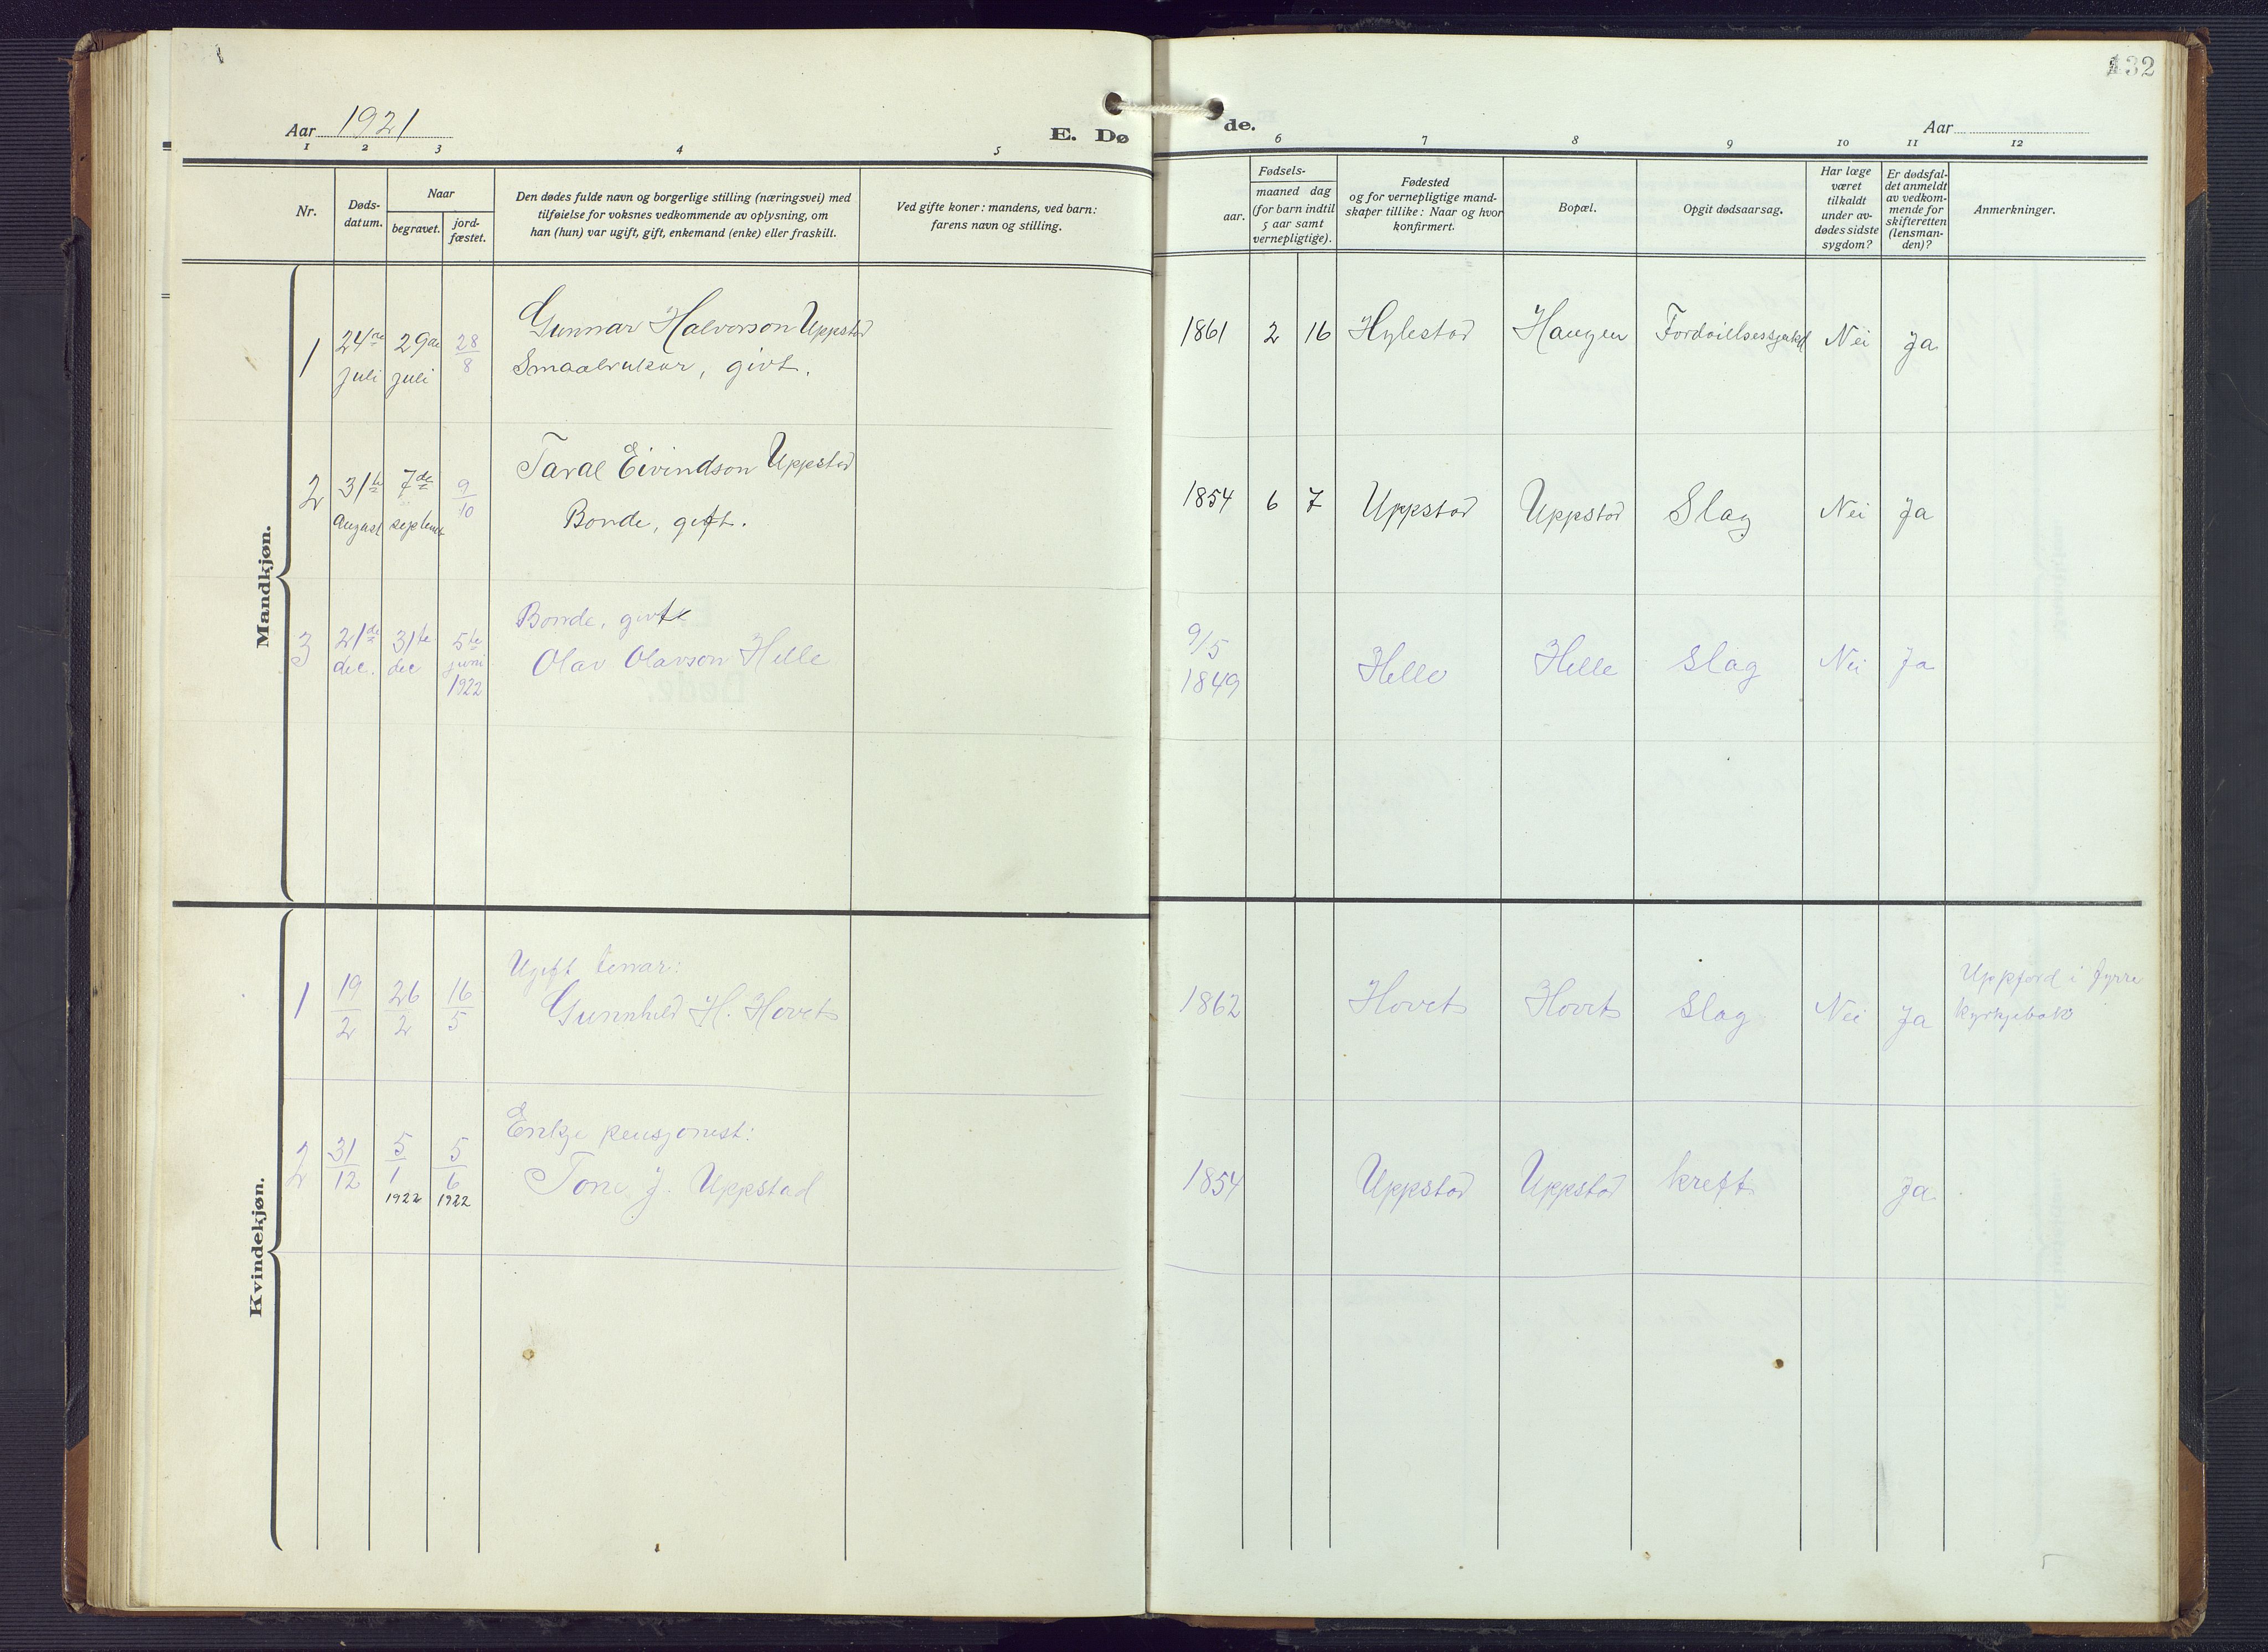 132
Aar 1921
E. Dø
de.
Aar
1 2 3 4 5 6 7 8 9 10 11 12
Nr.
Døds-
datum.
Naar
begravet.
jord-
fæstet.
Den dødes fulde navn og borgerlige stilling (næringsvei) med
tilføielse for voksnes vedkommende av oplysning, om
han (hun) var ugift, gift, enkemand (enke) eller fraskilt.
Ved gifte koner: mandens, ved barn:
farens navn og stilling.
Fødsels-
aar.
maaned dag
(for barn indtil
5 aar samt
vernepligtige).
Fødested
og for vernepligtige mand-
skaper tillike: Naar og hvor
konfirmert.
Bopæl.
Opgit dødsaarsag.
Har læge
været
tilkaldt
under av-
dødes sidste
sygdom?
Er dødsfal-
det anmeldt
av vedkom-
mende for
skifteretten
(lensman-
den)?
Anmerkninger.
Mandkjøn.
1 24 juli 29de juli 28/8 Gunnar Halvorson Uppstad
Smaabrukar, givt.
1861 2 16 Hylestad Haugen Nei Ja
2 31te august 7de 9/10 Taral Eivindson Uppstad
Bonde, gift.
1854 6 7 Uppstad Uppstad Slag Nei Ja
3 21de dec. 31te dec 5te juni 1922 Bonde, givt
Olav Olavson Helle
9/5 1849 Helle Helle Slag Nei Ja
Kvindekjøn.
1 19/2 26/2 16/5 Ugift tenar:
Gunnhild H. Hovet
1862 Hovet Hovet Slag Nei Ja Uppførd i fyrre
kyrkjebok
2 31/12 5/1 1922 5/6 1922 Enkje pensjonist:
Tone J. Uppstad
1854 Uppstad Uppstad kreft Ja